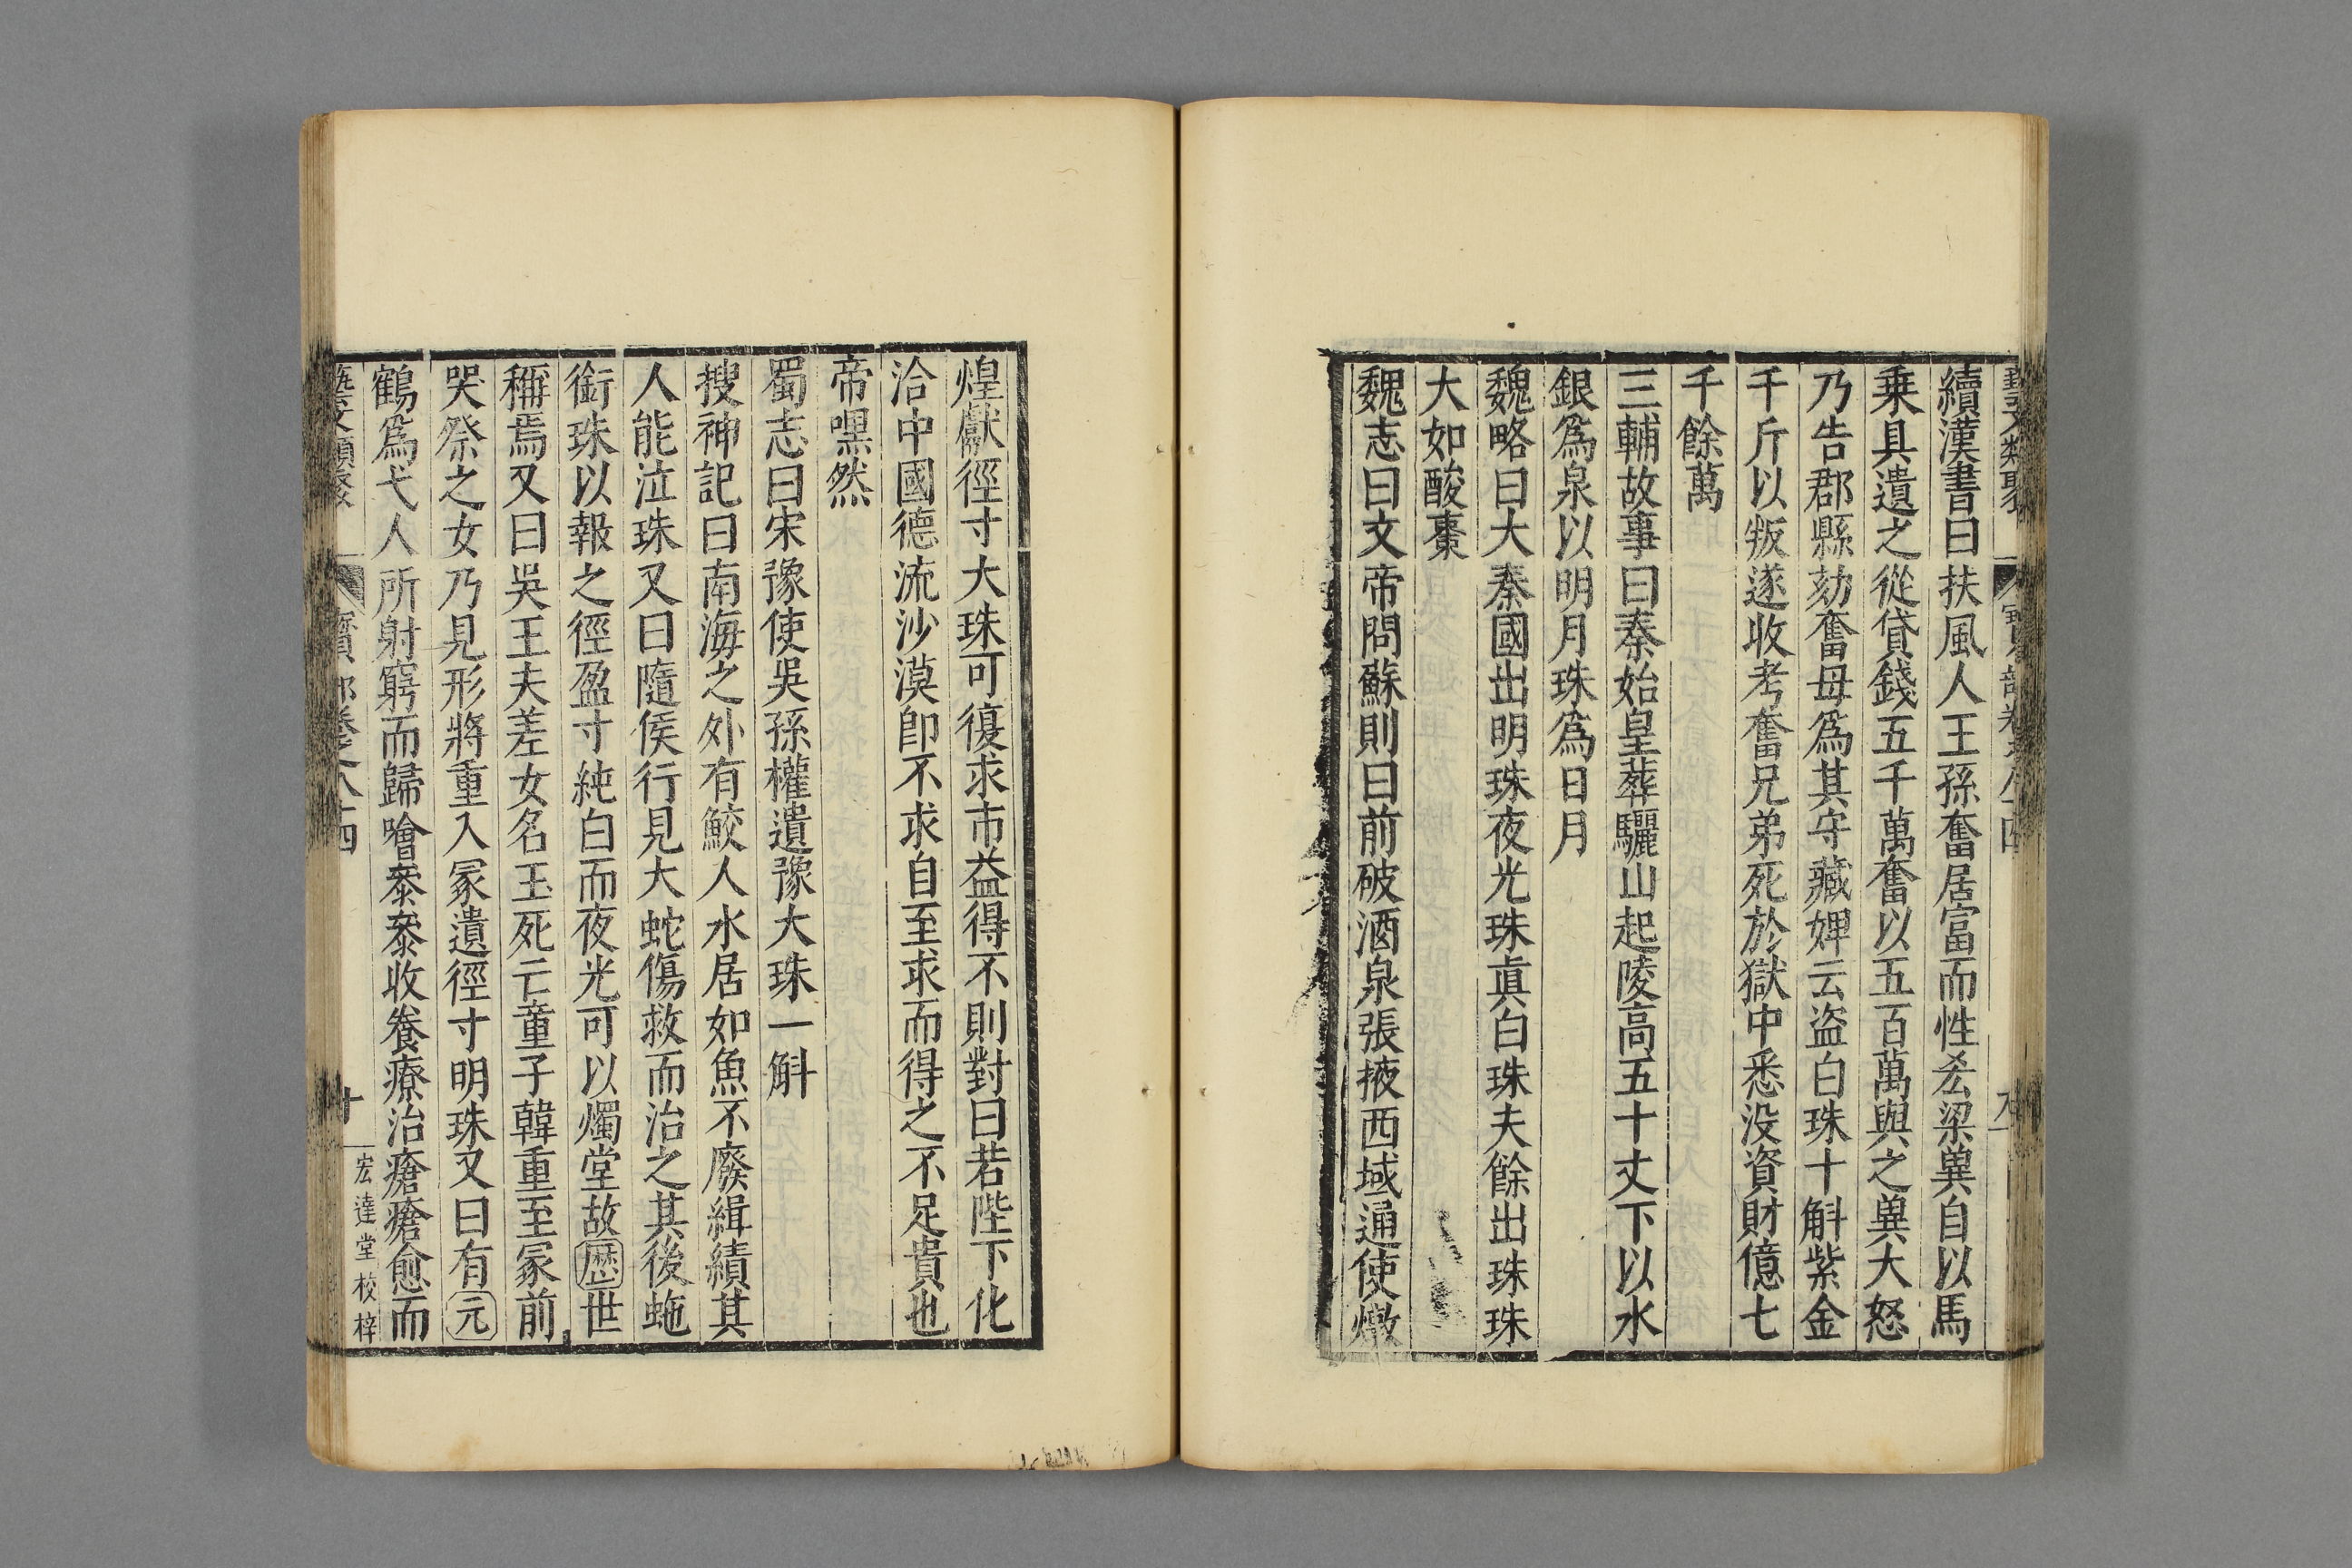 藝文類聚 寶部卷之八十四 九
續漢書曰扶風人王孫奮居富而性𠫤梁兾自以馬
乗具遺之從貸錢五千萬奮以五百萬與之兾大怒
乃告郡縣劾奮母爲其守藏婢云盗白珠十斛紫金
千斤以叛遂收考奮兄弟死於獄中悉没資財億七
千餘萬
三輔故事曰秦始皇葬驪山起陵高五十丈下以水
銀爲泉以明月珠爲日月
魏略曰大秦國出明珠夜光珠眞白珠夫餘出珠珠
大如酸棗
魏志曰文帝問蘇則曰前破酒泉張掖西域通使燉
煌獻徑寸大珠可復求市益得不則對曰若陛下化
洽中國德流沙漠卽不求自至求而得之不足貴也
帝嘿然
蜀志曰宋豫使吳孫權遺豫大珠一斛
搜神記曰南海之外有鮫人水居如魚不廢緝績其
人能泣珠又曰隨侯行見大蛇傷救而治之其後虵
銜珠以報之徑盈寸純白而夜光可以燭堂故歴世
稱焉又曰吳王夫差女名玉死亡童子韓重至冢前
哭祭之女乃見形將重入冢遺徑寸明珠又曰有元
鶴爲弋人所射窮而歸噲叅叅收養療治瘡瘡愈而
藝文類聚 寶部卷之八十四 十 宏達堂校梓